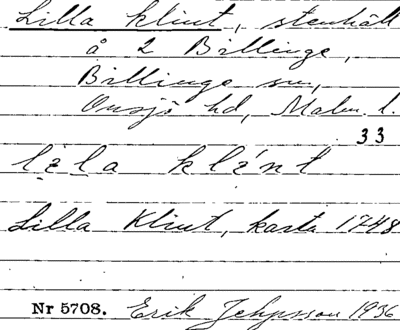 Lilla klint, stenhäll
å 2 Billinge,
Billinge sn,
Onsjö hd, Malm. l.
33
lịla klínt
Lilla Klint, karta 1748
Nr 5708. Erik Jeppsson 1936